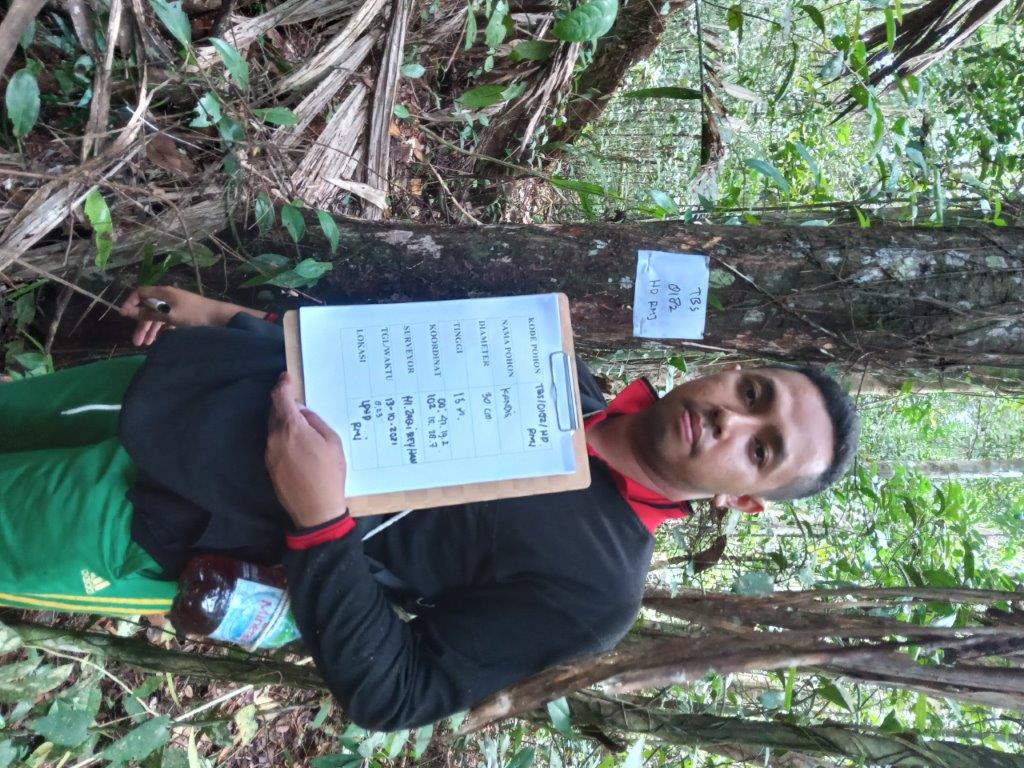 TBS
0182
HD RMJ
KODE POHON TBS/0182/HD
RMJ
NAMA POHON KANDIS
DIAMETER 30 CM
TINGGI 13 M.
KOORDINAT 00° 47. 19.2
102 15. 28.7
SURVEYOR M. ZAQI REYHAN
TGL/WAKTU 13-10-2021
LOKASI LPHD
RMJ
adidas